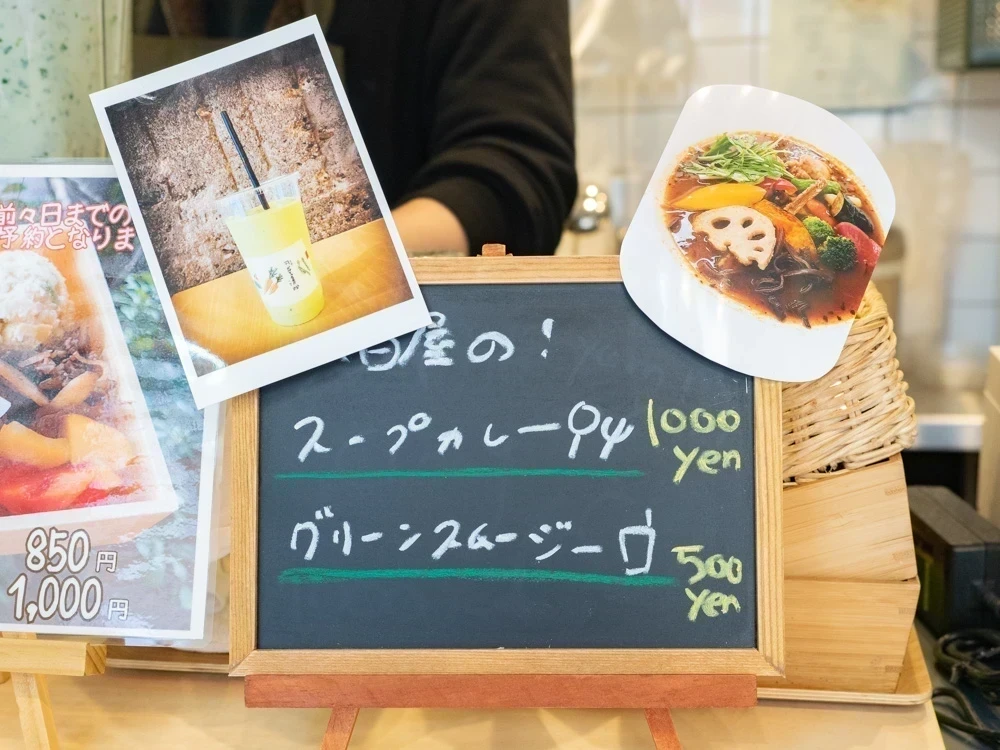 前々日までの
予約となりま
850円
1,000円
屋の！
スープカレー
1000
yen
グリーンスムージー
500
yen